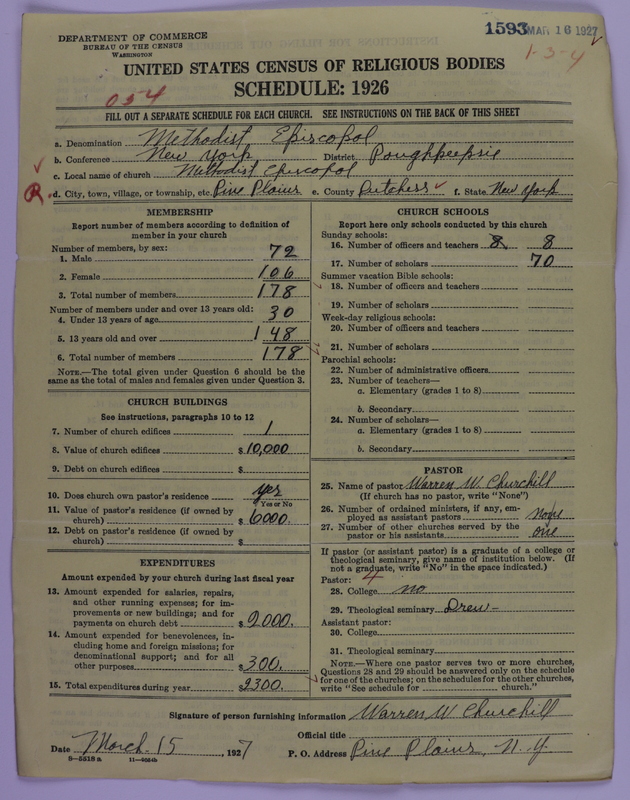 DEPARTMENT OF COMMERCE
BUREAU OF THE CENSUS
WASHINGTON
1593 MAR 16 1927
1-3-4
UNITED STATES CENSUS OF RELIGIOUS BODIES
SCHEDULE: 1926
054
FILL OUT A SEPARATE SCHEDULE FOR EACH CHURCH. SEE INSTRUCTIONS ON THE BACK OF THIS SHEET
a. Denomination Methodist Episcopal
b. Conference New York District Poughkeepsie
c. Local name of church Methodist Episcopal
R. d. City, town, village, or township, etc. Pine Plains e. County Dutchess f. State New York
MEMBERSHIP
Report number of members according to definition of
member in your church
Number of members, by sex:
1. Male 72
2. Female 106
3. Total number of members 178
Number of members under and over 13 years old:
4. Under 13 years of age 30
5. 13 years old and over 148
6. Total number of members 178
NOTE.—The total given under Question 6 should be
same as the total of males and females given under Question 3.
CHURCH BUILDINGS
See instructions, paragraphs 10 to 12
7. Number of church edifices 1
8. Value of church edifices $10,000
9. Debt on church edifices $
10. Does church own pastor's residence yes
Yes or No
11. Value of pastor's residence (if owned by
church) $6000.
12. Debt on pastor's residence (if owned by
church) $
EXPENDITURES
Amount expended by your church during last fiscal year
13. Amount expended for salaries, repairs,
and other running expenses; for im-
provements or new buildings; and for
payments on church debt $2000.
14. Amount expended for benevolences, in-
cluding home and foreign missions; for
denominational support; and for all
other purposes $300.
15. Total expenditures during year $2300.
CHURCH SCHOOLS
Report here only schools conducted by this church
Sunday schools:
16. Number of officers and teachers 8 8
17. Number of scholars 70
Summer vacation Bible schools:
18. Number of officers and teachers
19. Number of scholars
Week-day religious schools:
20. Number of officers and teachers
21. Number of scholars
Parochial schools:
22. Number of administrative officers
23. Number of teachers—
a. Elementary (grades 1 to 8)
b. Secondary
24. Number of scholars—
a. Elementary (grades 1 to 8)
b. Secondary
PASTOR
25. Name of pastor Warren W. Churchill
(If church has no pastor, write "None")
26. Number of ordained ministers, if any, em-
ployed as assistant pastors none
27. Number of other churches served by the
pastor or his assistants one
If pastor (or assistant pastor) is a graduate of a college or
theological seminary, give name of institution below. (If
not a graduate, write "No" in the space indicated.)
Pastor: 4
28. College no
29. Theological seminary Drew-
Assistant pastor:
30. College
31. Theological seminary
NOTE.—Where one pastor serves two or more churches,
Questions 28 and 29 should be answered only on the schedule
for one of the churches; on the schedules for the other churches,
write "See schedule for church."
Signature of person furnishing information Warren W. Churchill
Official title
Date March 15, 1927 P. O. Address Pine Plains, N. Y.
8-5518 a 11-9564b